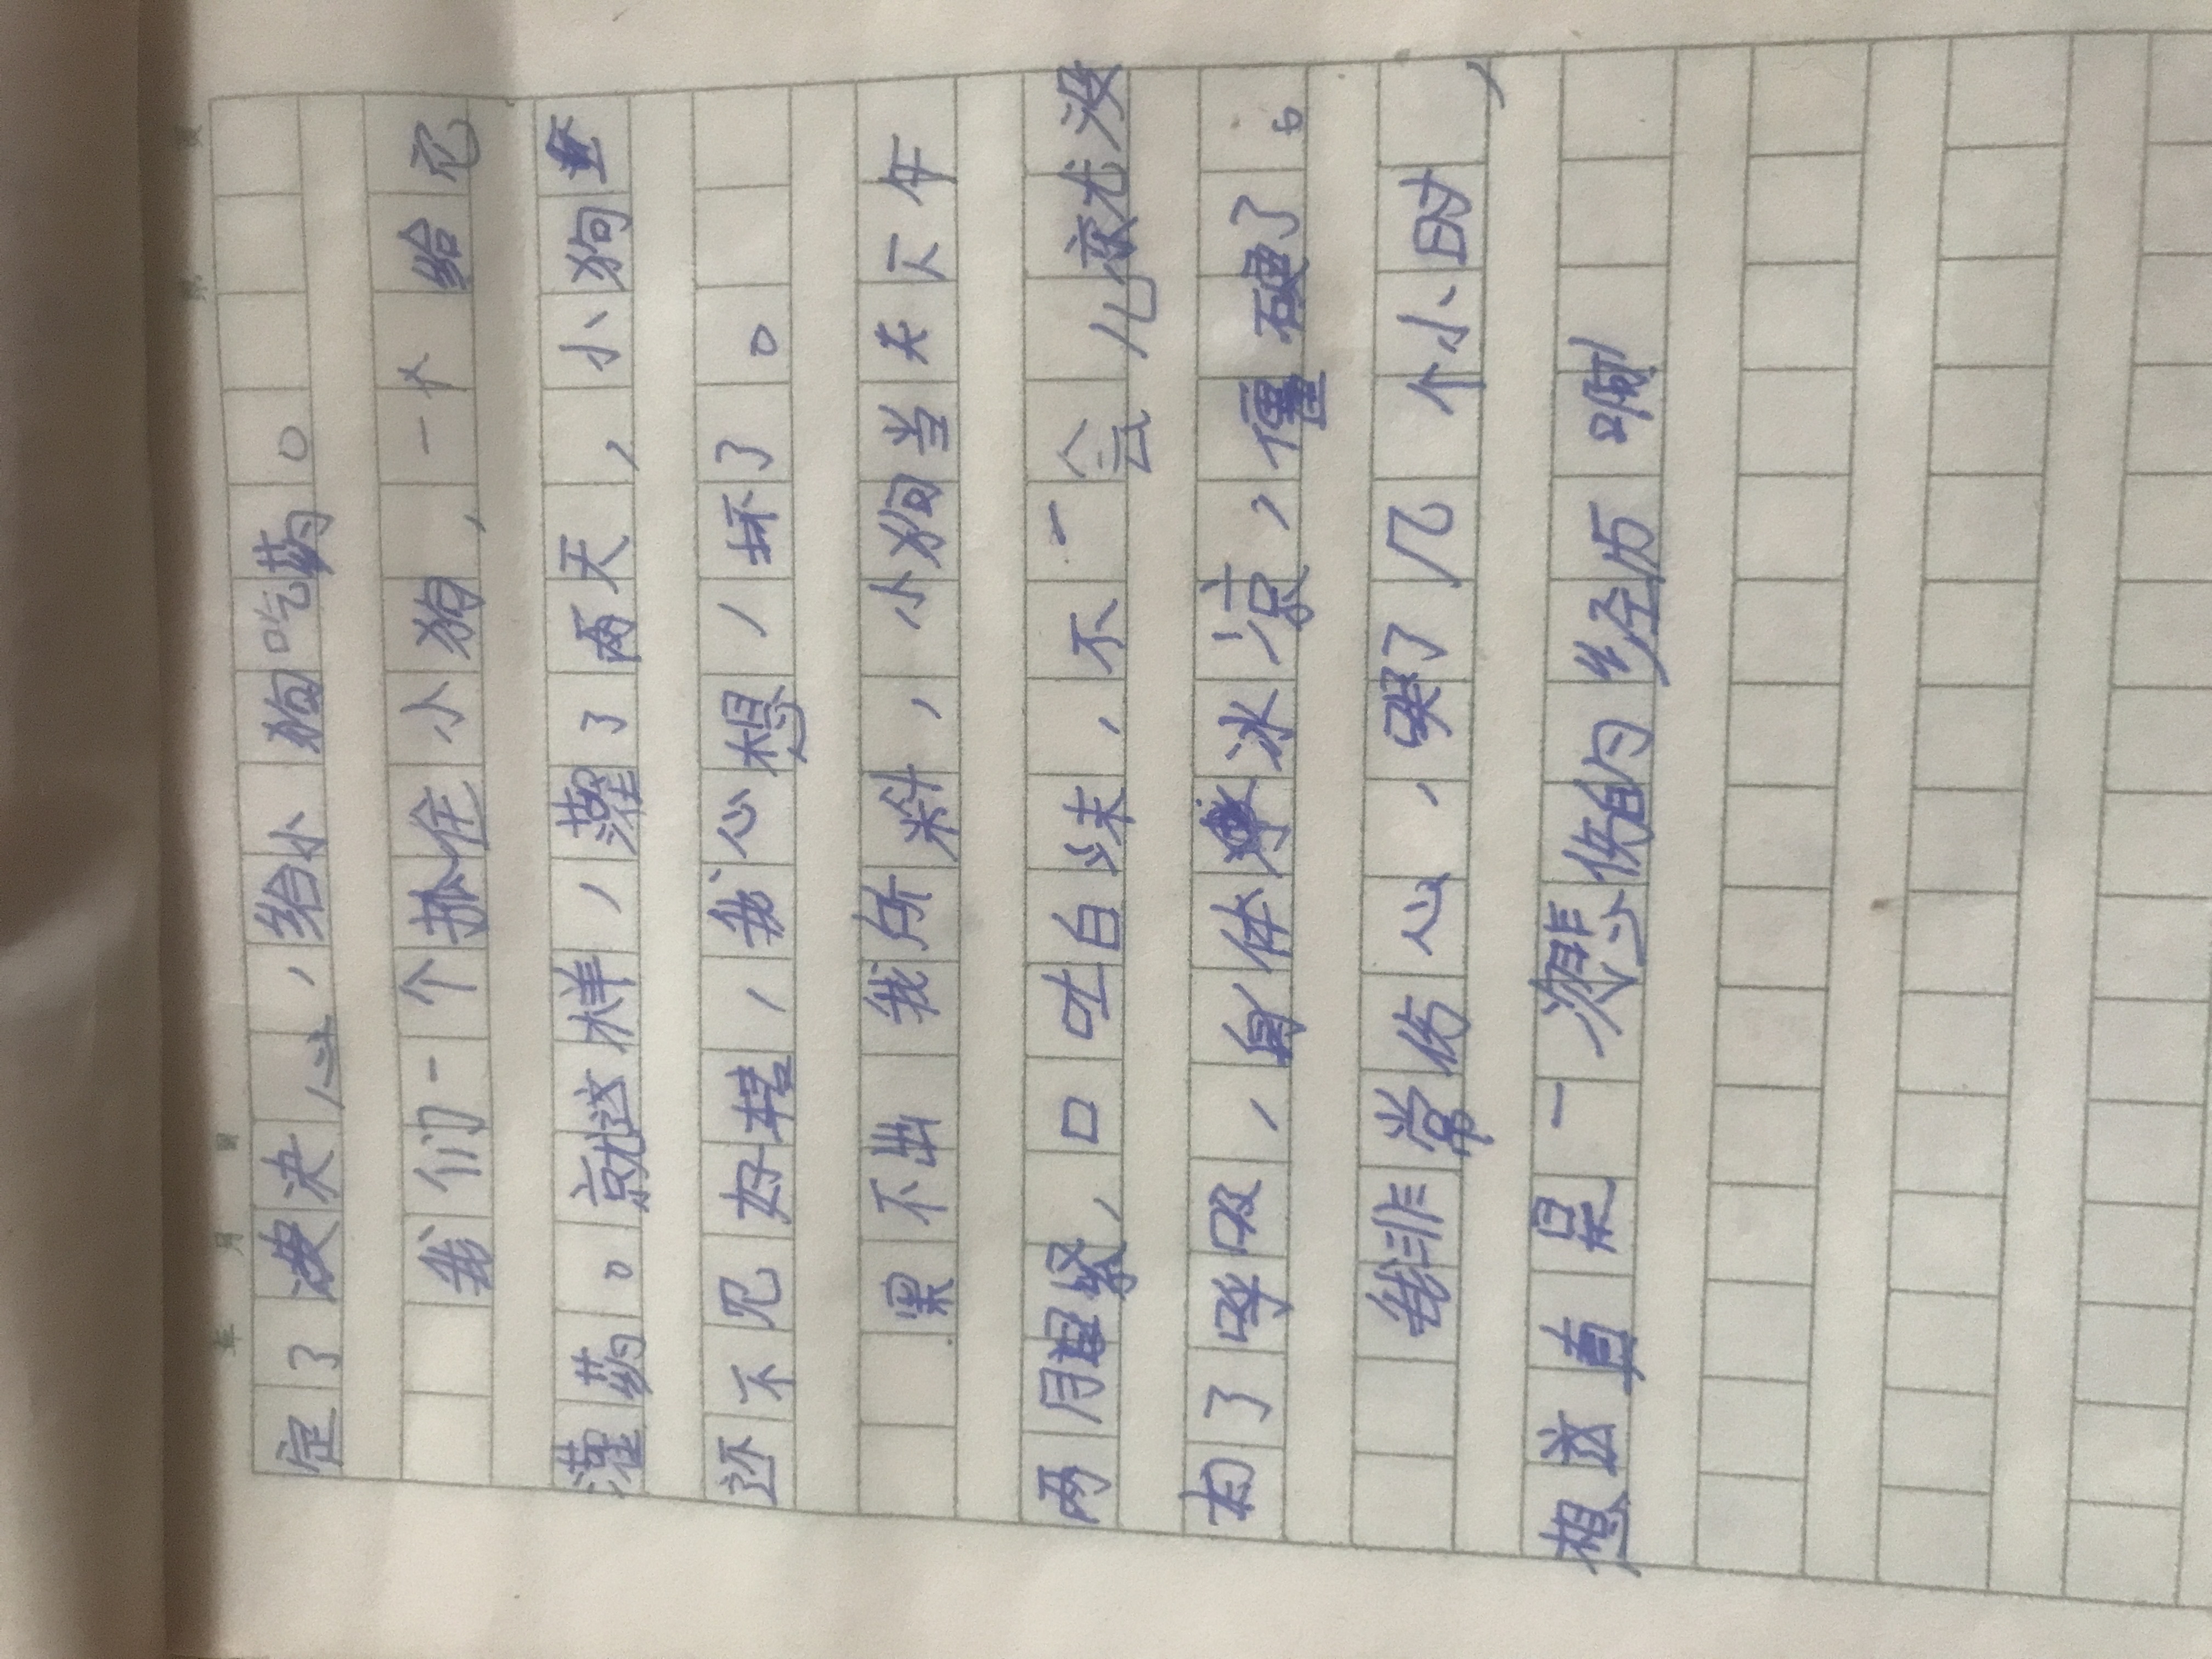 定了决决心，给小狗吃药。
我们一个抓住小狗，一个给它
灌药。就这样，灌了两天，小狗
还不见好转，我心想，坏了。
果不出我所料，小狗当天下午
两眼紧，口吐白沫，不一会儿变尤没
有了呼吸，身体冰凉，僵硬了。
我非常伤心，哭了几个小时，
想这真是一次悲伤的经历啊